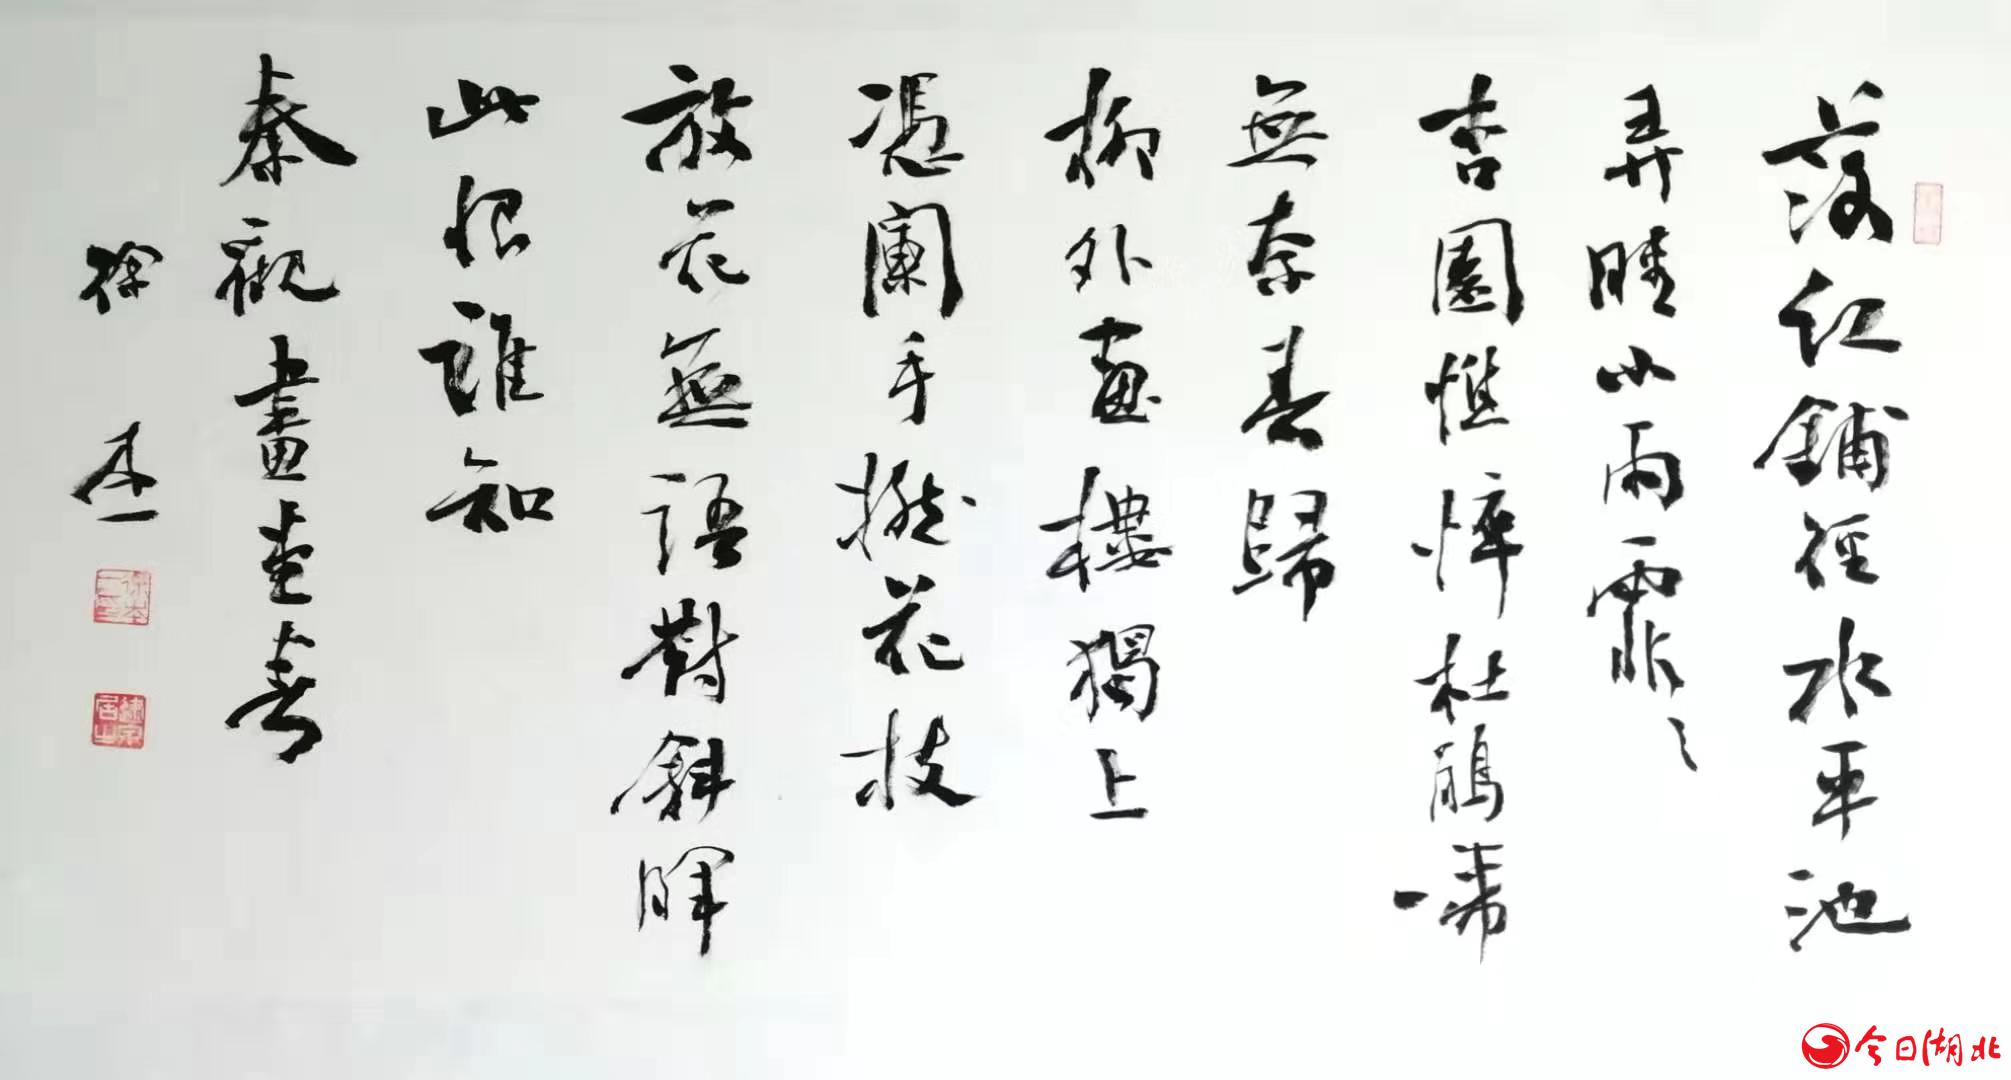 落紅鋪徑水平池
弄晴小雨霏〻
杏園憔悴杜鵑啼
無奈春歸
柳外畫樓獨上
憑闌手撚花枝
放花無語對斜暉
此恨誰知
秦觀畫堂春
徐本一
今日湖北